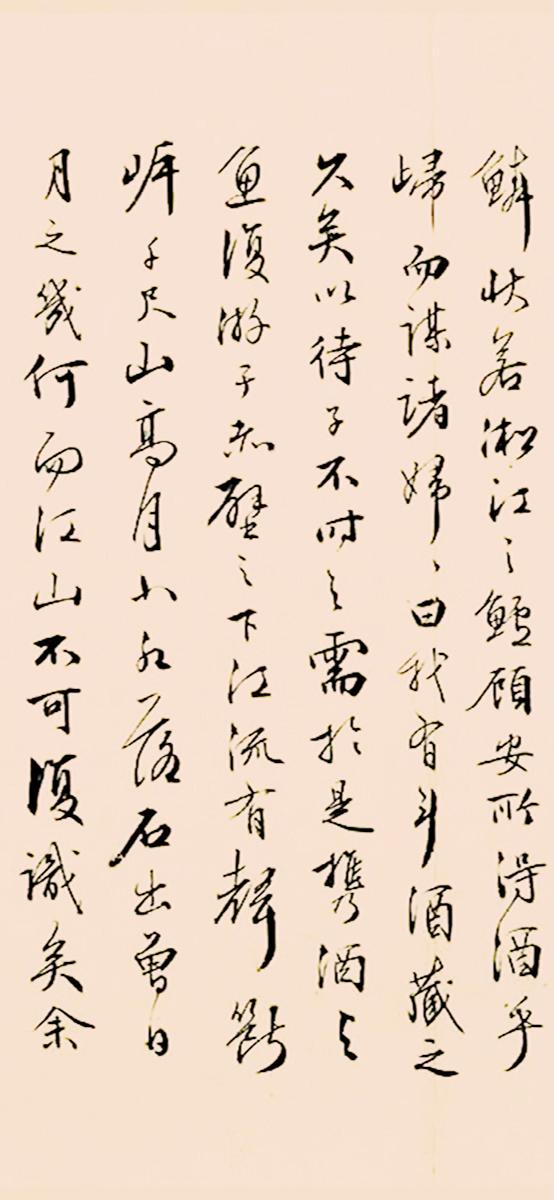 鱗狀若淞江之鱸顧安所得酒乎
歸而謀諸婦〻曰我有斗酒藏之
久矣以待子不時之需於是攜酒與
魚復游於赤壁之下江流有聲斷
岸千尺山高月小水落石出曾日
月之幾何而江山不可復識矣余